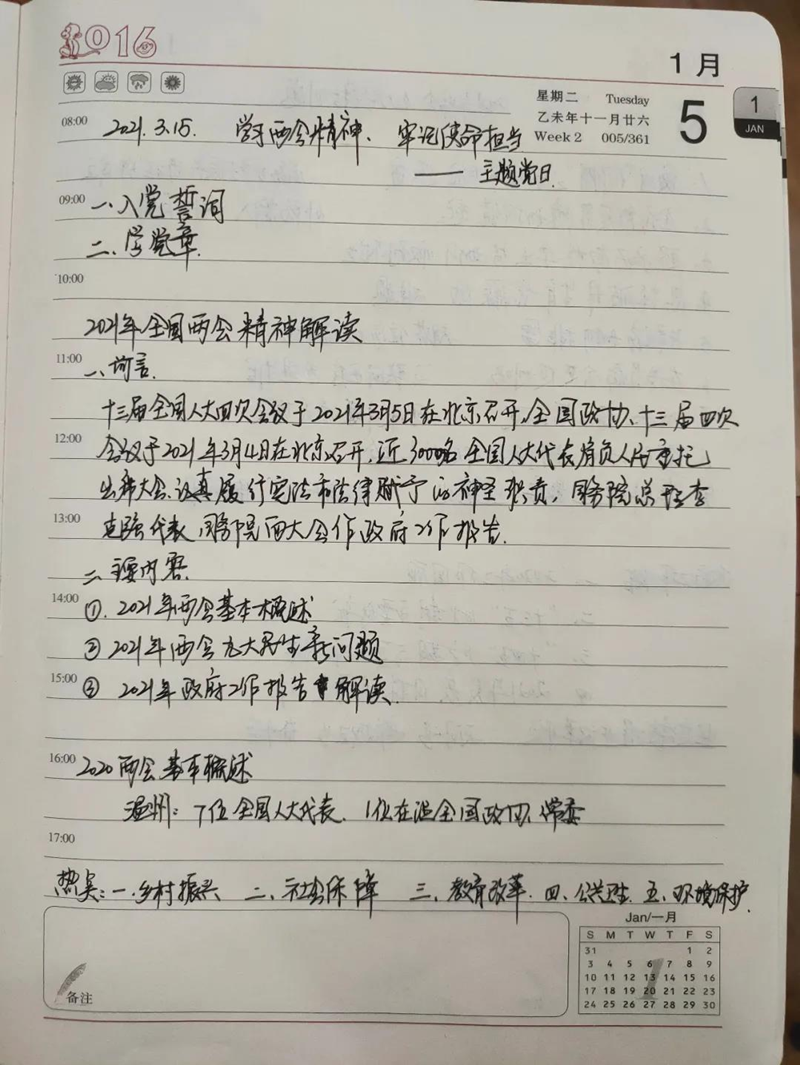 2016
1月
星期二 Tuesday
乙未年十一月廿六
Week 2 005/361
5
1
JAN
08:00
2021.3.15. 学习两会精神、牢记使命担当
—— 主题党日
09:00
一、入党誓词
二、学党章
10:00
2021年全国两会精神解读
11:00
一、前言
十三届全国人大四次会议于2021年3月5日在北京召开,全国政协、十三届四次
12:00
会议于2021年3月4日在北京召开,近3000名全国人大代表肩负人民重托
出席大会、认真履行宪法和法律赋予的神圣职责,国务院总理李
13:00
克强代表国务院向大会作政府工作报告.
二、主要内容
14:00
①. 2021年两会基本概述
② 2021年两会九大民生新问题
15:00
③ 2021年政府工作报告解读.
16:00
2020两会基本概述
温州: 7位全国人大代表. 1位在温全国政协常委
17:00
热点: 一.乡村振兴 二、社会保障 三、教育改革. 四、公共卫生. 五、环境保护.
备注
Jan/一月
S M T W T F S
31 1 2
3 4 5 6 7 8 9
10 11 12 13 14 15 16
17 18 19 20 21 22 23
24 25 26 27 28 29 30